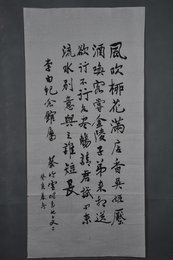 風吹柳花滿店香吳姬壓
酒喚客嘗金陵子弟來相送
欲行不行各盡觴請君試問東
流水別意與之誰短長
李白紀念館屬